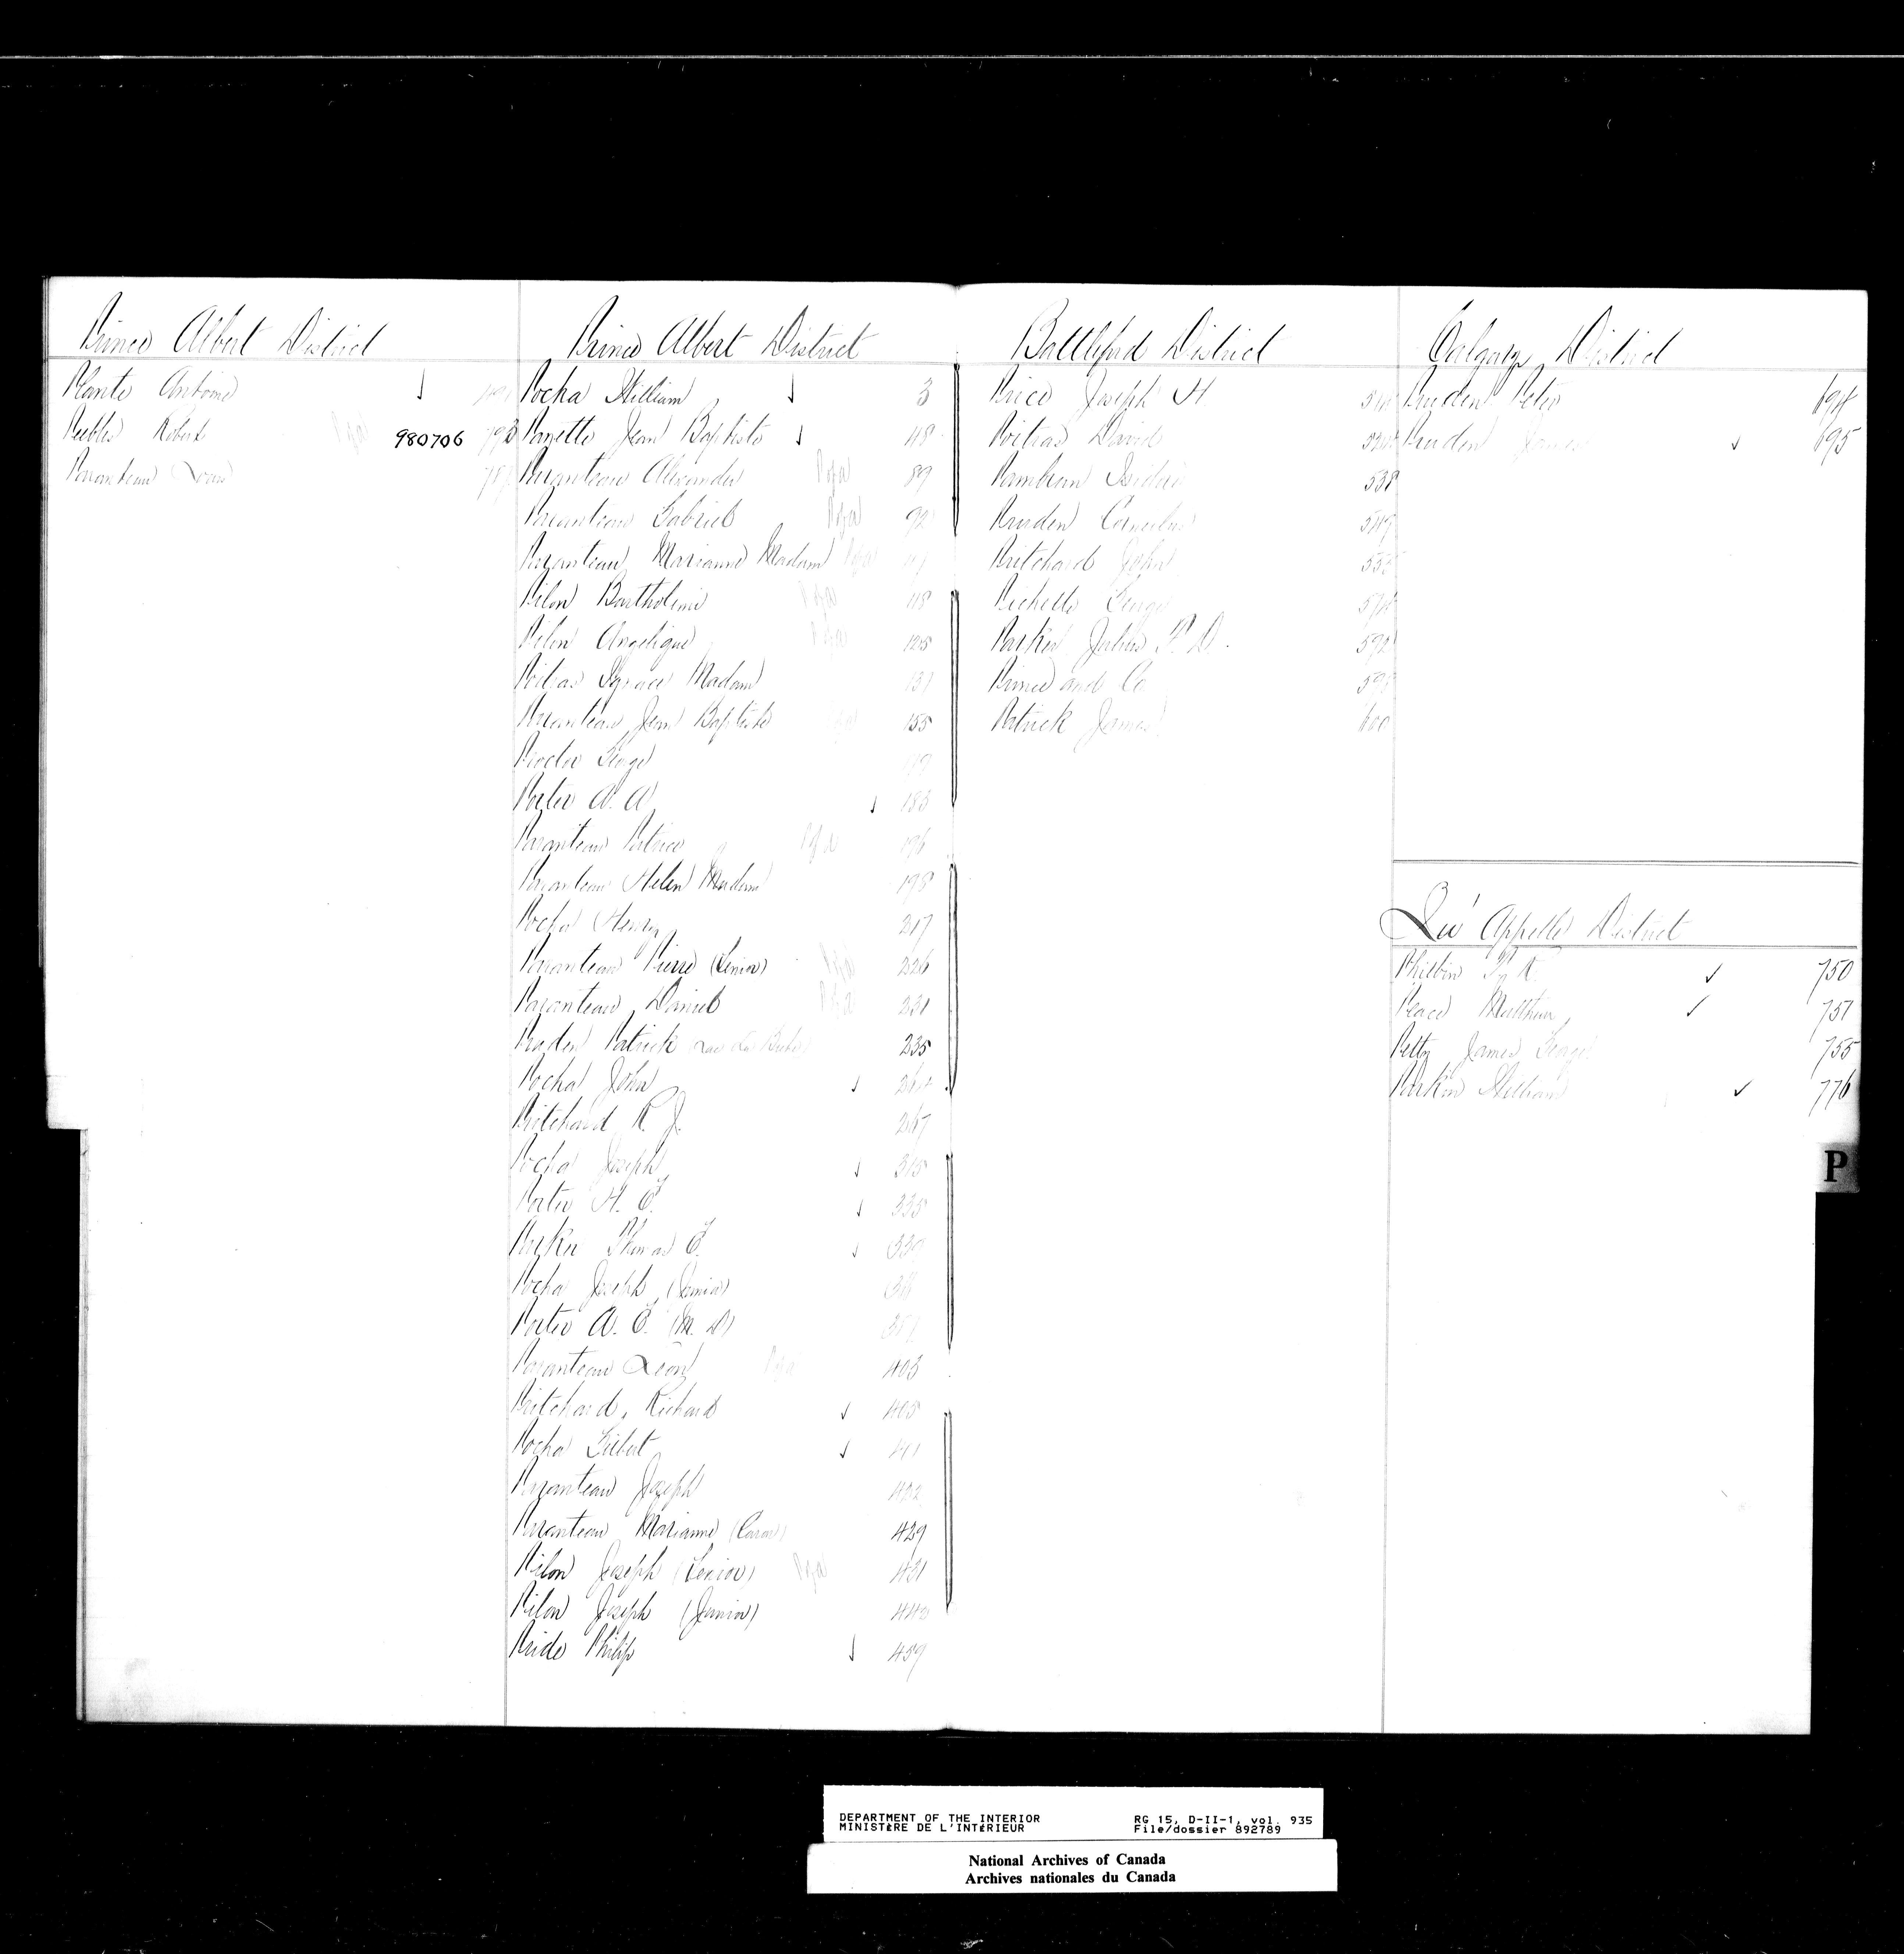 Prince Albert District
Plante Antoine
Peebles Robert 980706 793
Paranteau Louis
Prince Albert District
Pocha William 3
Payette Jean Baptiste 48
Paranteau Alexander 89
Paranteau Gabriel 92
Paranteau Marianne Madam
Pilon Bartholimi 118
Pilon Angelique 125
Poitras Ignace Madam 131
Paranteau Jean Baptiste 155
Proctor George
Porter A. A. 183
Paranteau Patrice 196
Paranteau Helen Madam 198
Pocha Henry 217
Paranteau Pierre (Senior) 226
Paranteau Daniel 231
Pruden Patrick Lac La Biche 235
Pocha John
Pritchard R. J. 267
Pocha Joseph 315
Porter H. E. 335
Parker Thomas E. 339
Pocha Joseph (Junior)
Porter A. E. (M. D)
Paranteau Leon 403
Pritchard, Richard 405
Pocha Gilbert 411
Paranteau Joseph 422
Paranteau Marianne (Caron) 429
Pilon Joseph (Senior) 431
Pilon Joseph (Junior)
Pride Philip 459
Battleford District
Price Joseph H
Poitras David
Pambrun Isidore 538
Pruden Cornelius 549
Pritchard John
Pichette George
Parker Julius F. D.
Prince and Co
Patrick James 600
Calgary District
Pruden Peter 694
Pruden James 695
Qu'Appelle District
Philbin 750
Peace Matthew 751
Petty James George 755
Parkin William 776
P
DEPARTMENT OF THE INTERIOR RG 15, D-II-1, vol. 935
MINISTÈRE DE L'INTÉRIEUR File/dossier 892789
National Archives of Canada
Archives nationales du Canada